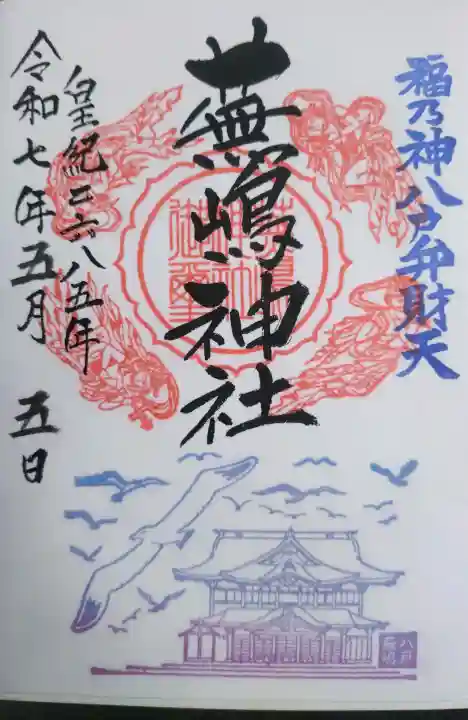 福乃神八方弁財天
蕪嶋神社
皇紀二六八五年
令和七年五月 五日
八戸
蕪嶋